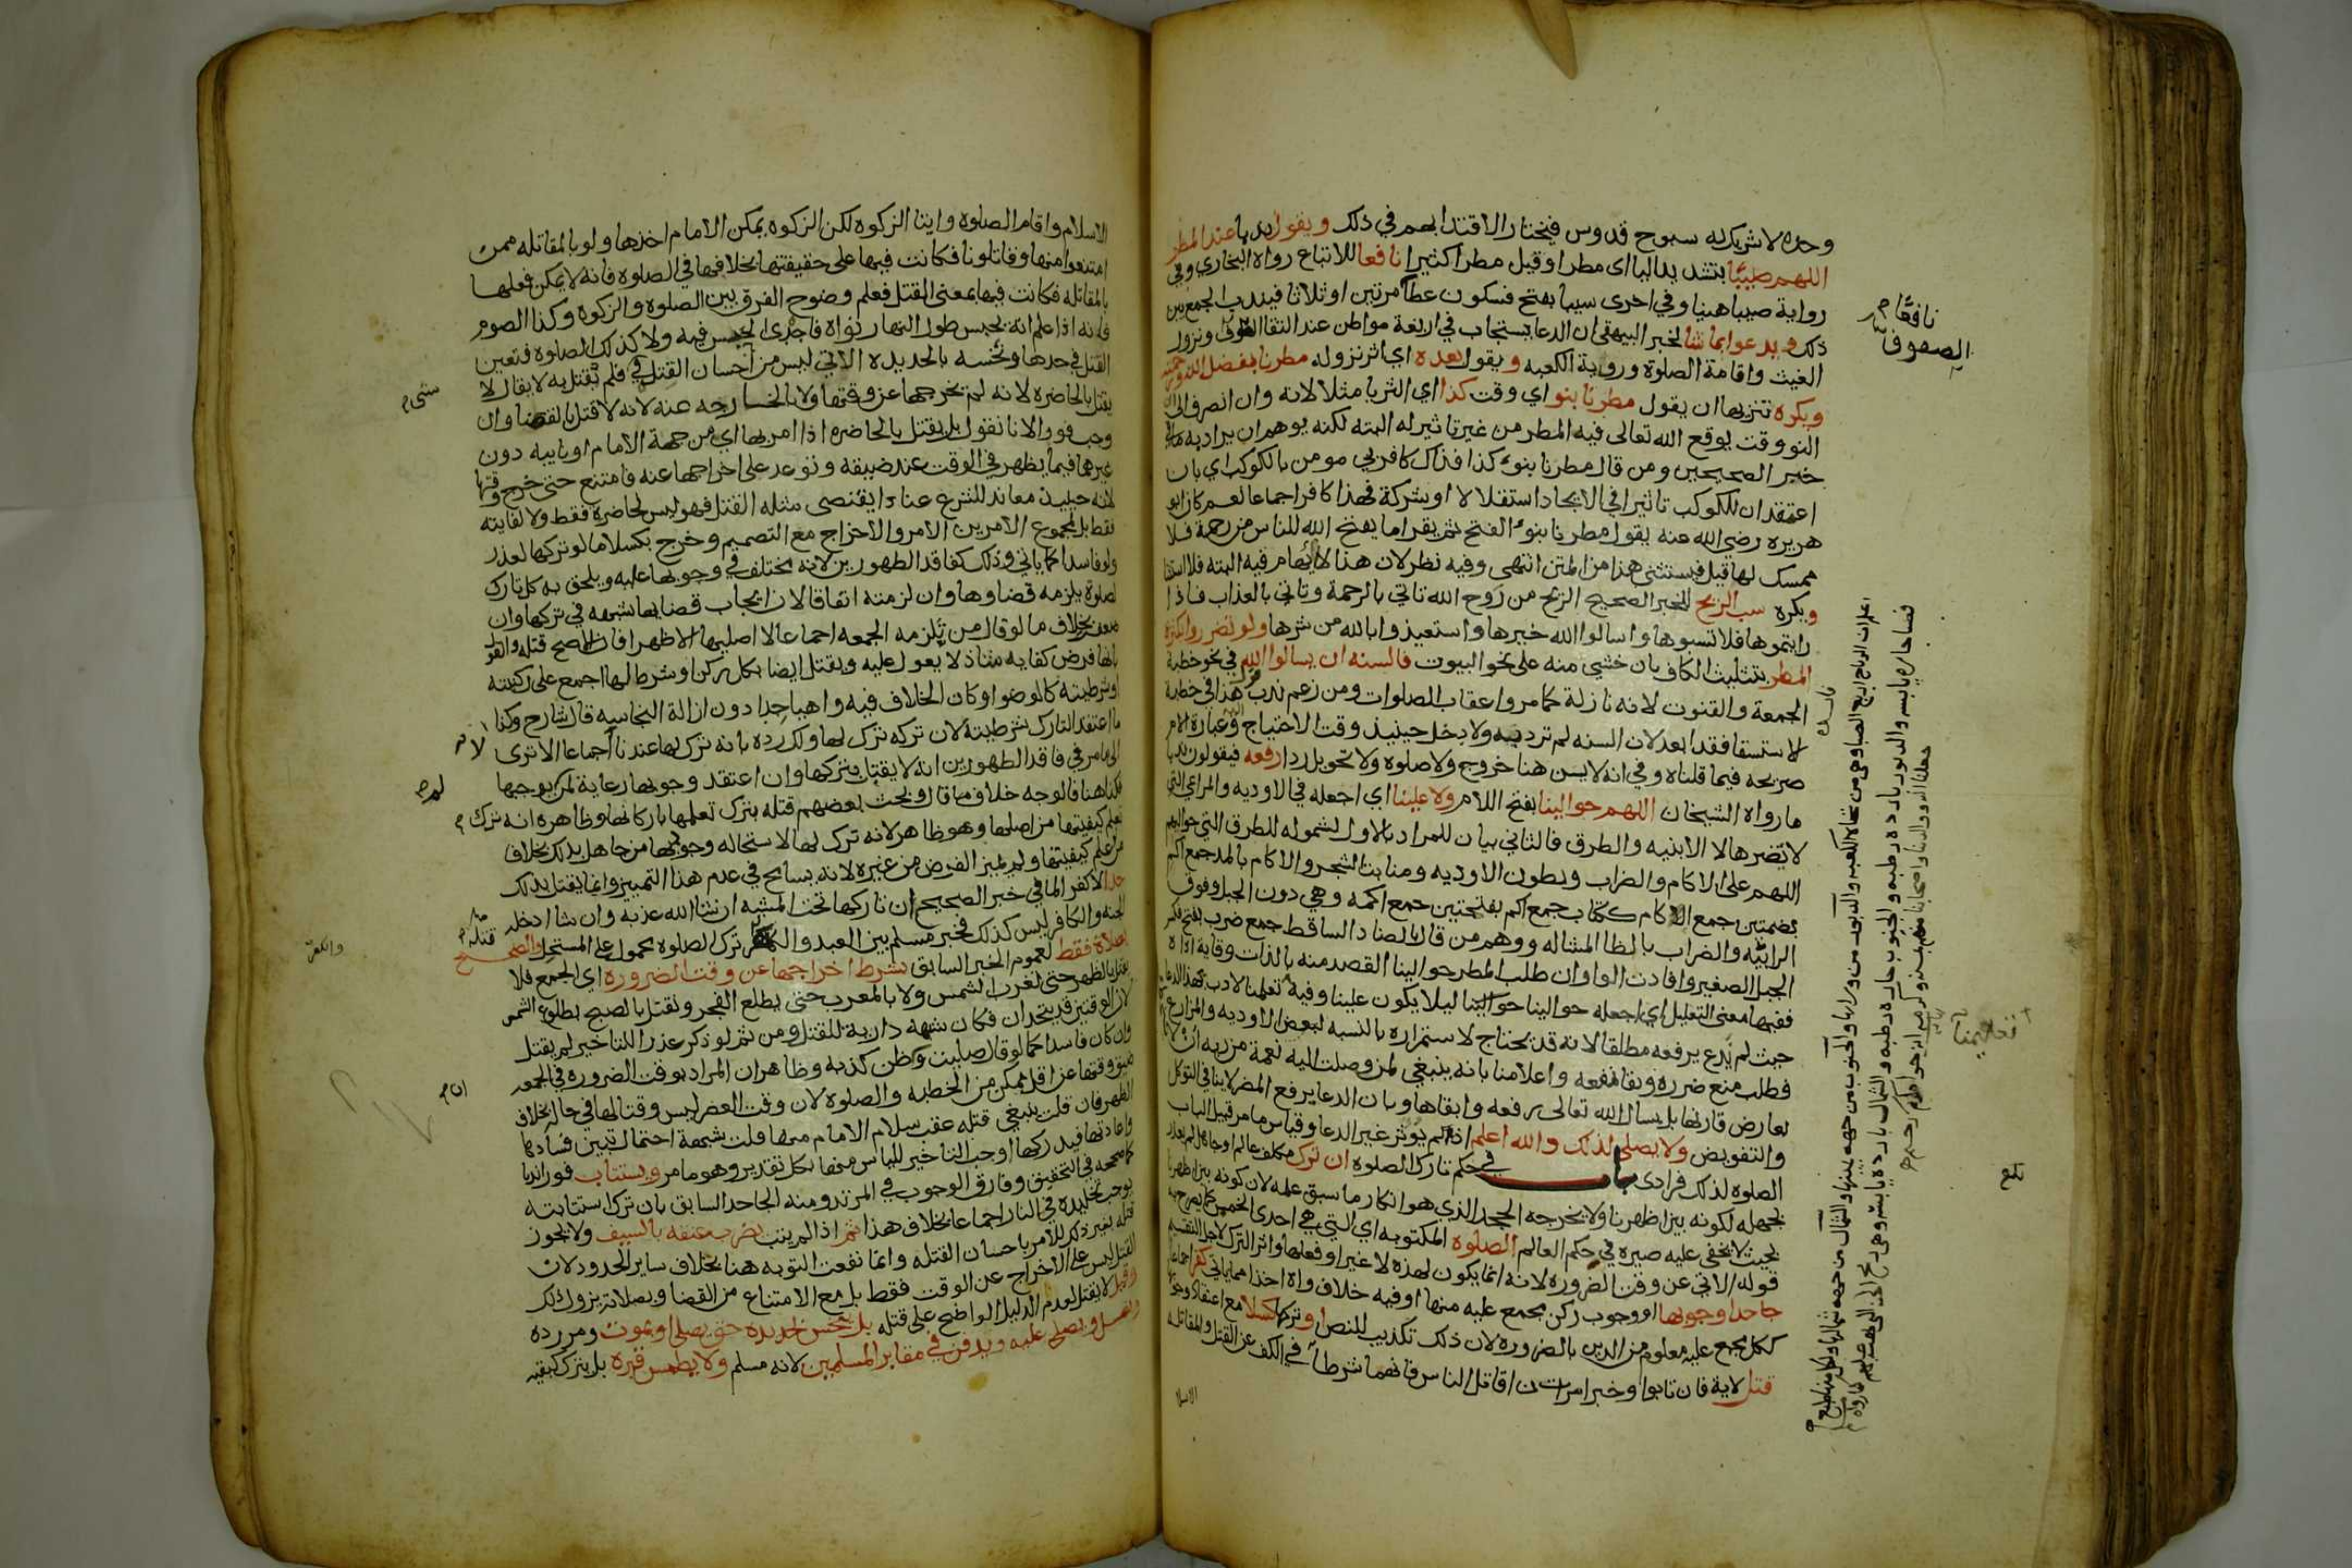 وحده لا شريك له سبوح قدوس فيختار الاقتدا بهم في ذلك ويقول ندبا عند المطر
اللهم صيبا بتشديد اليا اى مطرا وقيل مطرا كثيرا نافعا للاتباع رواه البخاري وفي
رواية صيبا هنيا وفي اخرى سيبا بفتح فسكون عطآ مرتين او ثلاثا فيندب الجمع بين
ذلك ويدعوا بما شا لخبر البيهقي ان الدعا يستجاب في اربعة مواطن عند التقا الصفوف ونزول
الغيث واقامة الصلوة وروية الكعبه ويقول بعده اي اثر نزوله مطرنا بفضل الله ورحمته
ويكره تنزيها ان يقول مطرنا بنو اي وقت كذا اي الثريا مثلا لانه وان انصرف الى ان
النو وقت يوقع الله تعالى فيه المطر من غير تاثير له البته لكنه يوهم ان يراد به ما في
خبر الصحيحين ومن قال مطرنا بنوء كذا فذاك كافر بي مومن بالكوكب اي بان
اعتقد ان للكوكب تاثيرا في الايجاد استقلالا او شركة فهذا كافر اجماعا نعم كان ابو
هريره رضي الله عنه يقول مطرنا بنوء الفتح ثم يقرا ما يفتح الله للناس من رحمة فلا
ممسك لها قيل فيستثنى هذا من المتن انتهى وفيه نظر لان هذا لا ايهام فيه البته فلا استثنا
ويكره سب الريح للخبر الصحيح الريح من روح الله تاتي بالرحمة وتاتي بالعذاب فاذا
رايتموها فلا تسبوها واسالوا الله خيرها واستعيذوا بالله من شرها ولو تضرروا بكثرة
المطر بتثليث الكاف بان خشي منه على نحو البيوت فالسنه ان يسالوا الله في نحو خطبة
الجمعة والقنوت لانه نازلة كما مر واعقاب الصلوات ومن زعم ندب هذا في خطبة
الاستسقا فقد ابعد لان السنه لم ترد به ولا يدخل حينيذ وقت الاحتياج وعبارة الام
صريحه فيما قلناه وفي انه لا يسن هنا خروج ولا صلوه ولا تحويل ردا رفعه فيقولون ندبا
ما رواه الشيخان اللهم حوالينا بفتح اللام ولا علينا اي اجعله في الاوديه والمراعي التي
لا يضرها لا الابنيه والطرق فالثاني بيان للمراد بالاول لشموله للطرق التي حواليهم
اللهم على الاكام والضراب وبطون الاوديه ومنابت الشجر والاكام بالمد جمع اكم
بضمتين جمع اكام ككتاب جمع اكم بفتحتين جمع اكمه وهي دون الجبل وفوق
الرابيه والضراب بالظا المشاله ووهم من قال بالضاد الساقط جمع ضرب بفتح فكسر
الجبل الصغير وافادت الواو ان طلب المطر حوالينا القصد منه بالذات وقاية اذاه
ففيها معنى التعليل اي اجعله حوالينا ليلا يكون علينا وفيه تعليمنا لادب هذا الدعا
حيث لم يدع برفعه مطلقا لانه قد يحتاج لاستمراره بالنسبه لبعض الاوديه والمزارع
فطلب منع ضرره وبقا نفعه واعلامنا بانه ينبغي لمن وصلت اليه نعمة من ربه ان لا
يعارض قارنها بل يسال الله تعالى برفعه وابقاها وبان الدعا برفع المضر لا ينافي التوكل
والتفويض ولا يصلى لذلك والله اعلم اذ لم يؤثر غير الدعا وقياس ما مر قبيل الباب
الصلوه لذلك فرادى باب في حكم تارك الصلوه ان ترك مكلف عالم او جاهل لم يعذر
بجهله لكونه بين اظهرنا ولا يخرجه الجحد الذي هو انكار ما سبق علمه لان كونه بين اظهرنا
بحيث لا يخفى عليه صيره في حكم العالم الصلوة المكتوبه اي التي هي احدى الخمس كما يصرح به
قوله الاتي عن وقت الضروره لانه انما يكون لهذه لا غير او فعلها واثر الترك لاجل التقسيم
جاحدا وجوبها او وجوب ركن مجمع عليه منها او فيه خلاف واه اخذا مما ياتي كفر اجماعا
ككل مجمع عليه معلوم من الدين بالضروره لان ذلك تكذيب للنص او تركها كسلا مع اعتقاد وجوبها
قتل لاية فان تابوا وخبر امرت ان اقاتل الناس فانهما شرطا في الكف عن القتل والمقاتله
الاسلا
نافعًا م
الصفوف
تعليمنا
بلغ
الاسلام واقام الصلوه وايتا الزكوه لكن الزكوه يمكن الامام اخذها ولو بالمقاتله ممن
امتنعوا منها وقاتلونا فكانت فيها على حقيقتها بخلافها في الصلوه فانه لا يمكن فعلها
بالمقاتله فكانت فيها بمعنى القتل فعلم وضوح الفرق بين الصلوه والزكوه وكذا الصوم
فانه اذا علم انه يحبس طول النهار نواه فاجدى الحبس فيه ولا كذلك الصلوه فتعين
القتل في حدها ونخسه بالحديده الاتي ليس من احسان القتل في شى فلم نقتل به لا يقال لا
يقتل بالحاضره لانه لم يخرجها عن وقتها ولا بالخارجه عنه لانه لا قتل بالقضا وان
وجب فورا لانا نقول بل يقتل بالحاضره اذا امر بها اي من جهة الامام او نايبه دون
غيرهما فيما يظهر في الوقت عند ضيقه وتوعد على اخراجها عنه فامتنع حتى خرج وقتها
لانه حينيذ معاند للشرع عنادا يقتضى مثله القتل فهو ليس لحاضره فقط ولا لفايته
فقط بل لمجموع الامرين الامر والاخراج مع التصميم وخرج بكسلا ما لو تركها لعذر
ولو فاسدا كما ياتي وذلك كفاقد الطهورين لانه مختلف في وجوبها عليه ويلحق به كل تارك
لصلوة يلزمه قضاوها وان لزمته اتفاقا لان ايجاب قضايها شبهه في تركها وان
ضعف بخلاف ما لو قال من تلزمه الجمعه اجماعا لا اصليها الا ظهرا فان الاصح قتله والقول
بانها فرض كفايه شاذ لا يعول عليه ويقتل ايضا بكل ركن او شرط لها اجمع على ركنيته
او شرطيته كالوضو او كان الخلاف فيه واهيا جدا دون ازالة النجاسه قال شارح وكذا
ما اعتقد التارك شرطيته لان تركه ترك لها ولك رده بانه ترك لها عندنا لا اجماعا الا ترى
الى ما مر في فاقد الطهورين انه لا يقتل بتركها وان اعتقد وجوبها رعاية لمن لم يوجبها
فكذا هنا فالوجه خلاف ما قال وبحث بعضهم قتله بترك تعلمها باركانها وظاهره انه بترك
تعلم كيفيتها من اصلها وهو ظاهر لانه ترك لها لاستحاله وجودها من جاهل بذلك بخلاف
من علم كيفيتها ولم يميز الفرض من غيره لانه يسامح في عدم هذا التمييز وانما يقتل بذلك
حدا لا كفرا لما في خبر الصحيح ان تاركها تحت المشيه ان شا الله عذبه وان شا ادخله
الجنه والكافر ليس كذلك فخبر مسلم بين العبد والكفر ترك الصلوه محمول على المستحل والصحيح
قتله بصلاة فقط لعموم الخبر السابق بشرط اخراجها عن وقت الضروره اي الجمع فلا
يقتل بالظهر حتى تغرب الشمس ولا بالمغرب حتى يطلع الفجر ويقتل بالصبح بطلوع الشمس
لان الوقتين قد يتحدان فكان شبهه دارية للقتل ومن ثم لو ذكر عذرا للتاخير لم يقتل
وان كان فاسدا كما لو قال صليت وظن كذبه وظاهر ان المراد بوقت الضروره في الجمعه
ضيق وقتها عن اقل ممكن من الخطبه والصلوه لان وقت العصر ليس وقتا لها في حال بخلاف
الظهر فان قلت ينبغي قتله عقب سلام الامام منها قلت شبهة احتمال تبين فسادها
واعادتها فيدركها اوجب التاخير للياس منها بكل تقدير وهو ما مر ويستتاب فورا ندبا
كما صححه في التحقيق وفارق الوجوب في المرتد ومنه الجاحد السابق بان ترك استتابته
يوجب تخليده في النار اجماعا بخلاف هذا ثم اذا لم يتب تضرب عنقه بالسيف ولا يجوز
قتله بغير ذلك للامر باحسان القتله وانما نفعت التوبه هنا بخلاف ساير الحدود لان
القتل ليس على الاخراج عن الوقت فقط بل مع الامتناع من القضا وبصلاته يزول ذلك
وقيل لا يقتل لعدم الدليل الواضح على قتله بل ينخس بحديده حتى يصلى او يموت ومر رده
ويغسل ويصلى عليه ويدفن في مقابر المسلمين لانه مسلم ولا يطمس قبره بل يترك كبقيه
شى م
لا
لم م
قتله م
ان م